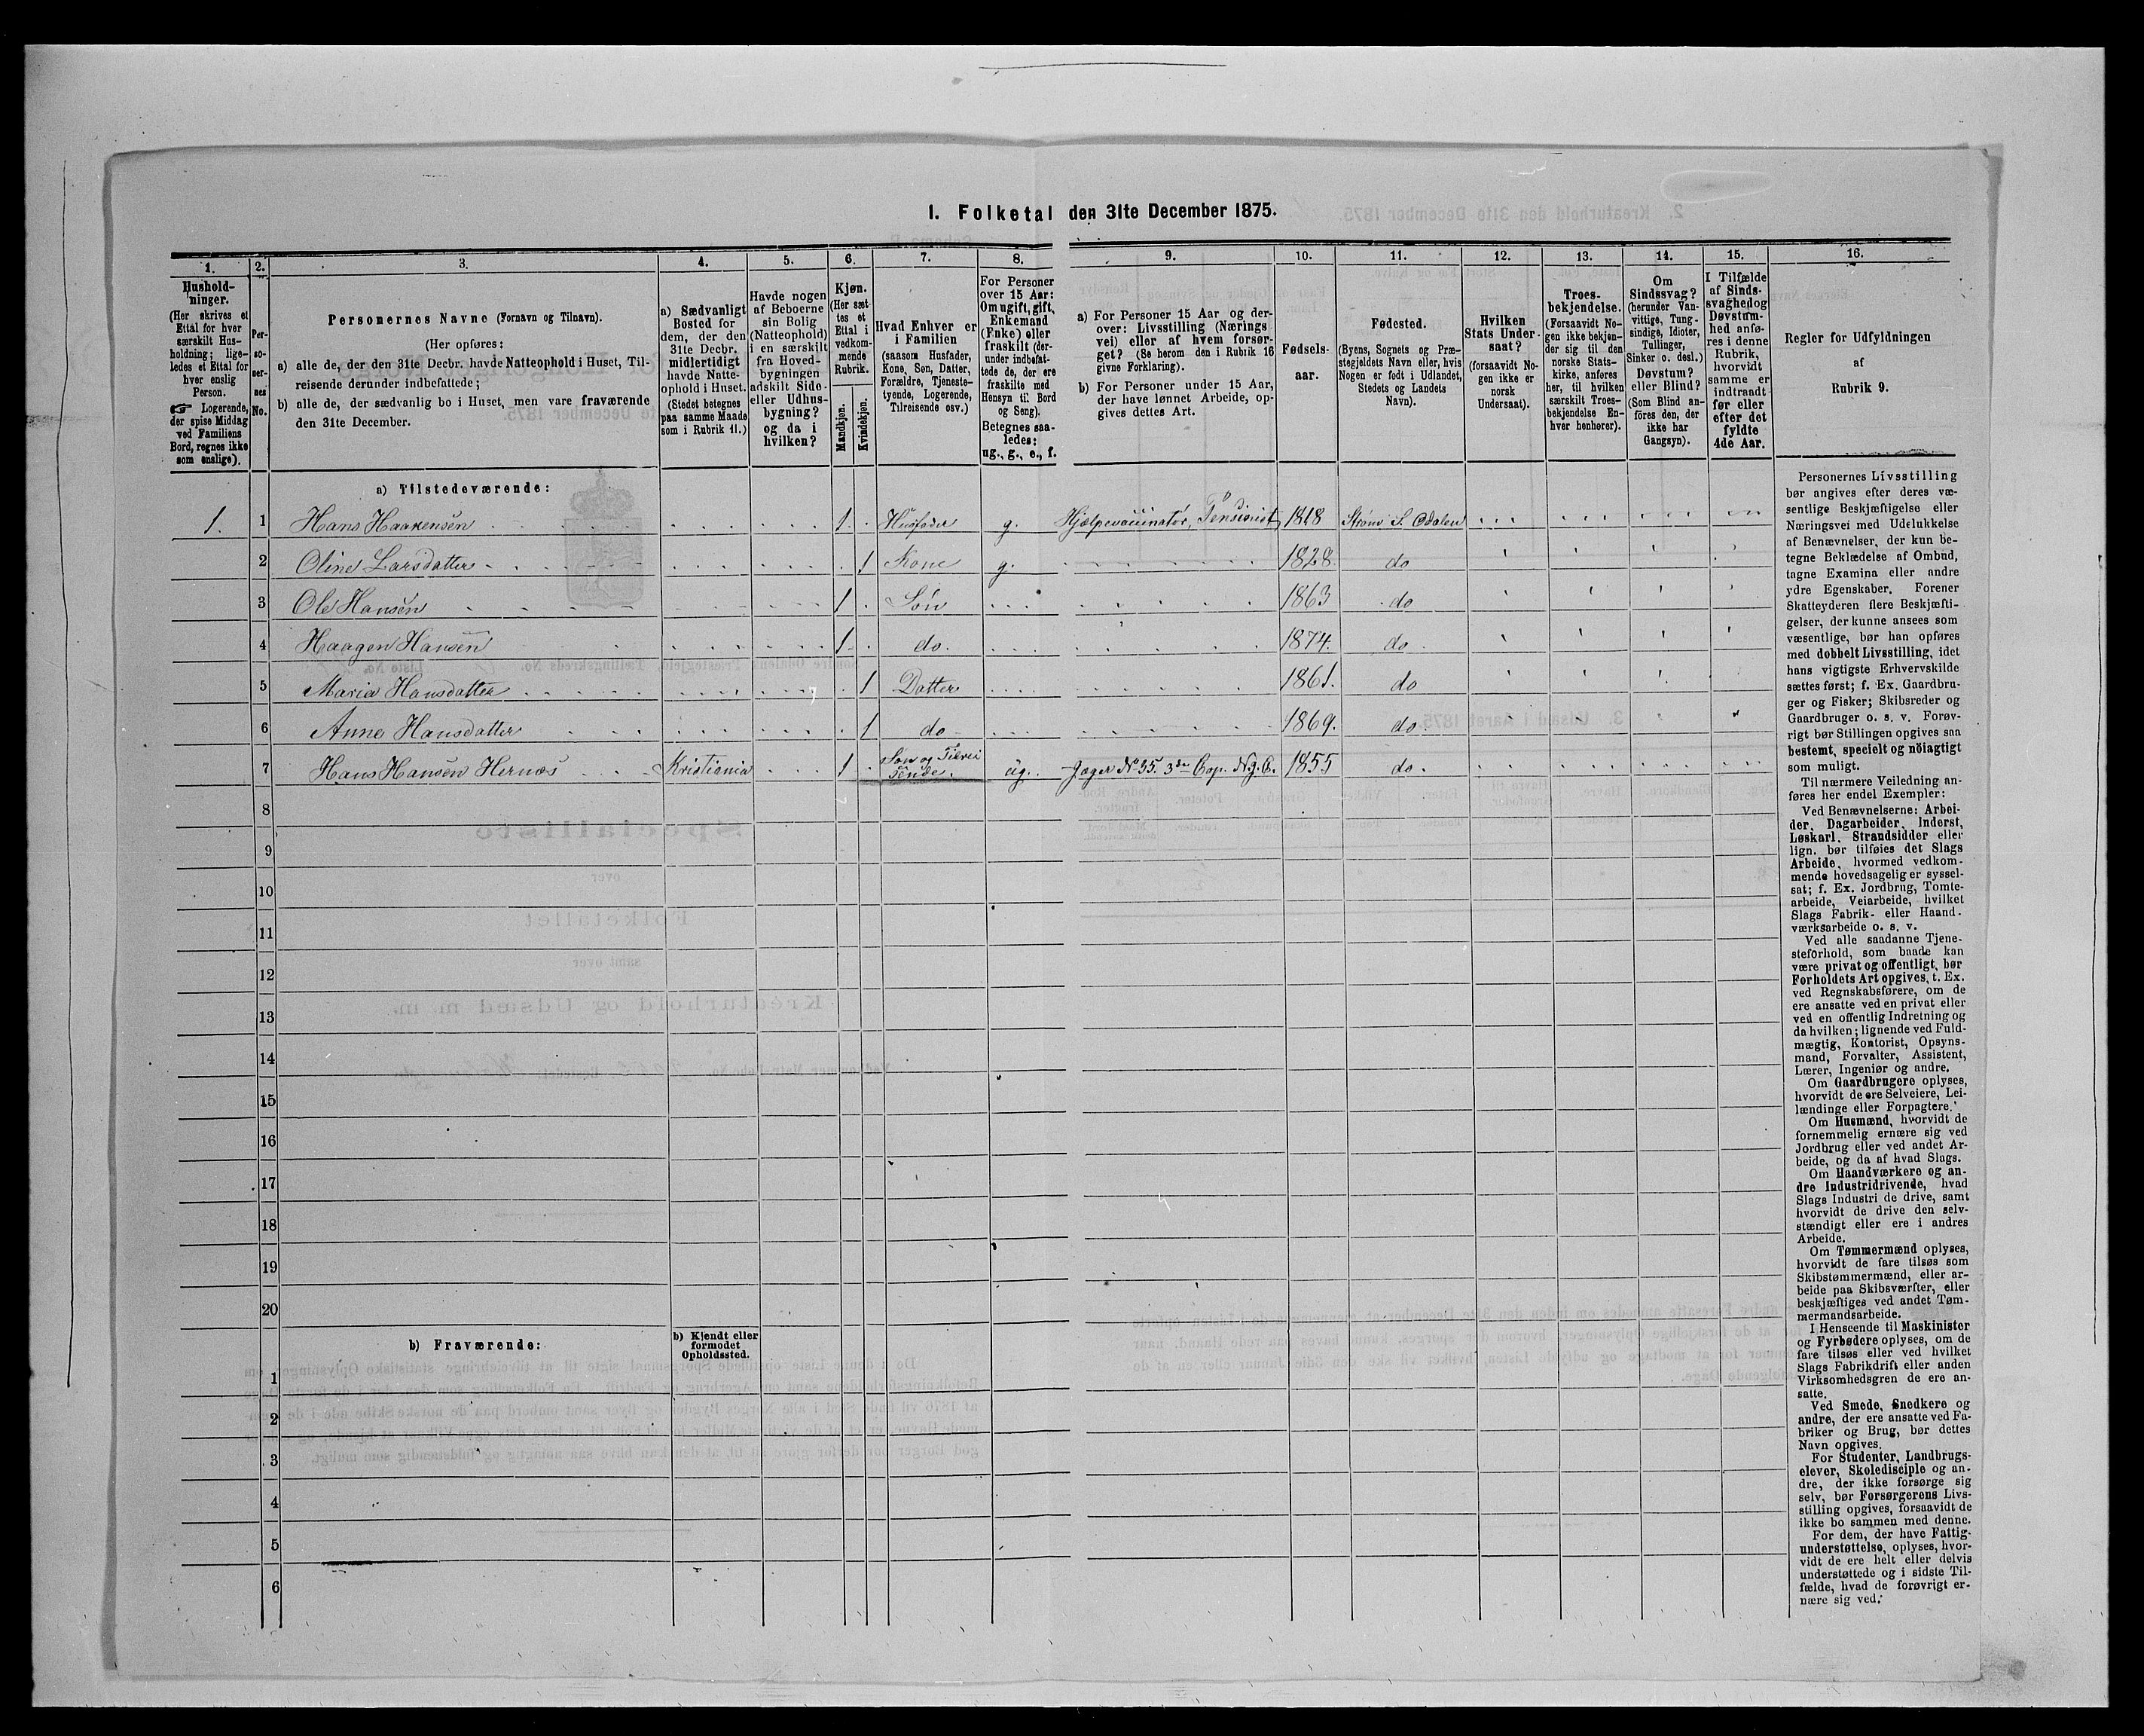 1. Folketal den 31te December 1875.
1.
Hushold-
ninger.
(Her skrives et
Ettal for hver
særskilt Hus-
holdning; lige-
ledes et Ettal for
hver enslig
Person.
☞ Logerende,
der spise Middag
ved Familiens
Bord, regnes ikke
som enslige).
2.
Per-
so-
ner-
nes
No.
3.
Personernes Navne (Fornavn og Tilnavn).
(Her opføres:
a) alle de, der den 31te Decbr. havde Natteophold i Huset, Til-
reisende derunder indbefattede;
b) alle de, der sædvanlig bo i Huset, men vare fraværende
den 31te December.
4.
a) Sædvanligt
Bosted for
dem, der den
31te Decbr.
midlertidigt
havde Natte-
ophold i Huset.
(Stedet betegnes
paa samme Maade
som i Rubrik 11.)
5.
Havde nogen
af Beboerne
sin Bolig
(Natteophold)
i en særskilt
fra Hoved-
bygningen
adskilt Side-
eller Udhus-
bygning?
og da i
hvilken?
6.
Kjøn.
(Her sæt
tes et
Ettal i
vedkom-
mende
Rubrik.
Mandkjøn.
Kvindekjøn.
7.
Hvad Enhver er
i Familien
(saasom Husfader,
Kone, Søn, Datter,
Forældre, Tjeneste-
tyende, Logerende,
Tilreisende osv.)
8.
For Personer
over 15 Aar:
Om ugift, gift,
Enkemand
(Enke) eller
fraskilt (der-
under indbefat-
tede de, der ere
fraskilte med
Hensyn til Bord
og Seng).
Betegnes saa-
ledes:
ug., g., e., f.
9.
a) For Personer 15 Aar og der-
over: Livsstilling (Nærings
vei) eller af hvem forsør-
get? (Se herom den i Rubrik 16
givne Forklaring).
b) For Personer under 15 Aar,
der have lønnet Arbeide, op-
gives dettes Art.
10.
Fødsels-
aar.
11.
Fødested.
(Byens, Sognets og Præ-
stegjeldets Navn eller, hvis
Nogen er født i Udlandet,
Stedets og Landets
Navn).
12.
Hvilken
Stats Under-
saat?
(forsaavidt No-
gen ikke er
norsk
Undersaat).
13.
Troes-
bekjendelse.
(Forsaavidt No-
gen ikke bekjen-
der sig til den
norske Stats-
kirke, anføres
her, til hvilken
særskilt Troes-
bekjendelse En-
hver henhører).
14.
Om
Sindssvag?
(herunder Van-
vittige, Tung-
sindige, Idioter,
Tullinger,
Sinker o. desl.)
Døvstum?
eller Blind?
(Som Blind an-
føres den, der
ikke har
Gangsyn).
15.
I Tilfælde
af Sinds-
svaghed og
Døvstum-
hed anfø-
res i denne
Rubrik,
hvorvidt
samme er
indtraadt
før eller
efter det
fyldte
4de Aar.
16.
Regler for Udfyldningen
af
Rubrik 9.
a) Tilstedeværende:
1. 1 Hans Haakensén 1 Husfader g. Hjælpevaccinatør, Pensionist 1818 Strøm S. Odalen
2 Oline Larsdatter 1 Kone g. 1828. do
3 Ole Hansén 1 Søn 1863 do
4 Haagen Hansén 1 do. 1874. do.
5 Maria Hansdatter 1 Datter 1861. do
6 Anne Hansdatter 1 do 1869. do.
7 Hans Hansén Hernæs Kristiania 1 Søn og Tilrei
sende. ug. Jæger No 35. 3de Cop. N. J. C. 1855 do.
8
9
10
11
12
13
14
15
16
17
18
19
20
b) Fraværende:
b) Kjendt eller
formodet
Opholdssted.
1
2
3
4
5
6
Personernes Livsstilling
bør angives efter deres væ-
sentlige Beskjæftigelse eller
Næringsvei med Udelukkelse
af Benævnelser, der kun be-
tegne Beklædelse af Ombud,
tagne Examina eller andre
ydre Egenskaber. Forener
Skatteyderen flere Beskjæfti-
gelser, der kunne ansees som
væsentlige, bør han opføres
med dobbelt Livsstilling, idet
hans vigtigste Erhvervskilde
sættes først; f. Ex. Gaardbru-
ger og Fisker; Skibsreder og
Gaardbruger o. s. v. Forøv-
rigt bør Stillingen opgives saa
bestemt, specielt og nöiagtigt
som muligt.
Til nærmere Veiledning an-
føres her endel Exempler:
Ved Benævnelserne: Arbei-
der, Dagarbeider, Inderst,
Løskarl, Strandsidder eller
lign. bør tilføies det Slags
Arbeide, hvormed vedkom-
mende hovedsagelig er syssel-
sat; f. Ex. Jordbrug, Tomte-
arbeide, Veiarbeide, hvilket
Slags Fabrik- eller Haand-
værksarbeide o. s. v.
Ved alle saadanne Tjene-
steforhold, som baade kan
være privat og offentligt, bør
Forholdets Art opgives, t. Ex.
ved Regnskabsførere, om de
ere ansatte ved en privat eller
ved en offentlig Indretning og
da hvilken; lignende ved Fuld-
mægtig, Kontorist, Opsyns-
mand, Forvalter, Assistent,
Lærer, Ingeniør og andre.
Om Gaardbrugere oplyses,
hvorvidt de ere Selveiere, Lei-
lændinge eller Forpagtere.
Om Husmænd, hvorvidt de
fornemmelig ernære sig ved
Jordbrug eller ved andet Ar-
beide, og da af hvad Slags.
Om Haandværkere og an-
dre Industridrivende, hvad
Slags Industri de drive, samt
hvorvidt de drive den selv-
stændigt eller ere i andres
Arbeide.
Om Tømmermænd oplyses,
hvorvidt de fare tilsøs som
Skibstømmermænd, eller ar-
beide paa Skibsværfter, eller
beskjæftiges ved andet Tøm-
mermandsarbeide.
I Henseende til Maskinister
og Fyrbødere oplyses, om de
fare tilsøs eller ved hvilket
Slags Fabrikdrift eller anden
Virksomhedsgren de ere an-
satte.
Ved Smede, Snedkere og
andre, der ere ansatte ved Fa-
briker og Brug, bør dettes
Navn opgives.
For Studenter, Landbrugs-
elever, Skoledisciple og an-
dre, der ikke forsørge sig
selv, bør Forsørgerens Livs-
stilling opgives, forsaavidt de
ikke bo sammen med denne.
For dem, der have Fattig-
understøttelse, oplyses, hvor-
vidt de ere helt eller delvis
understøttede og i sidste Til-
fælde, hvad de forøvrigt er-
nære sig ved.